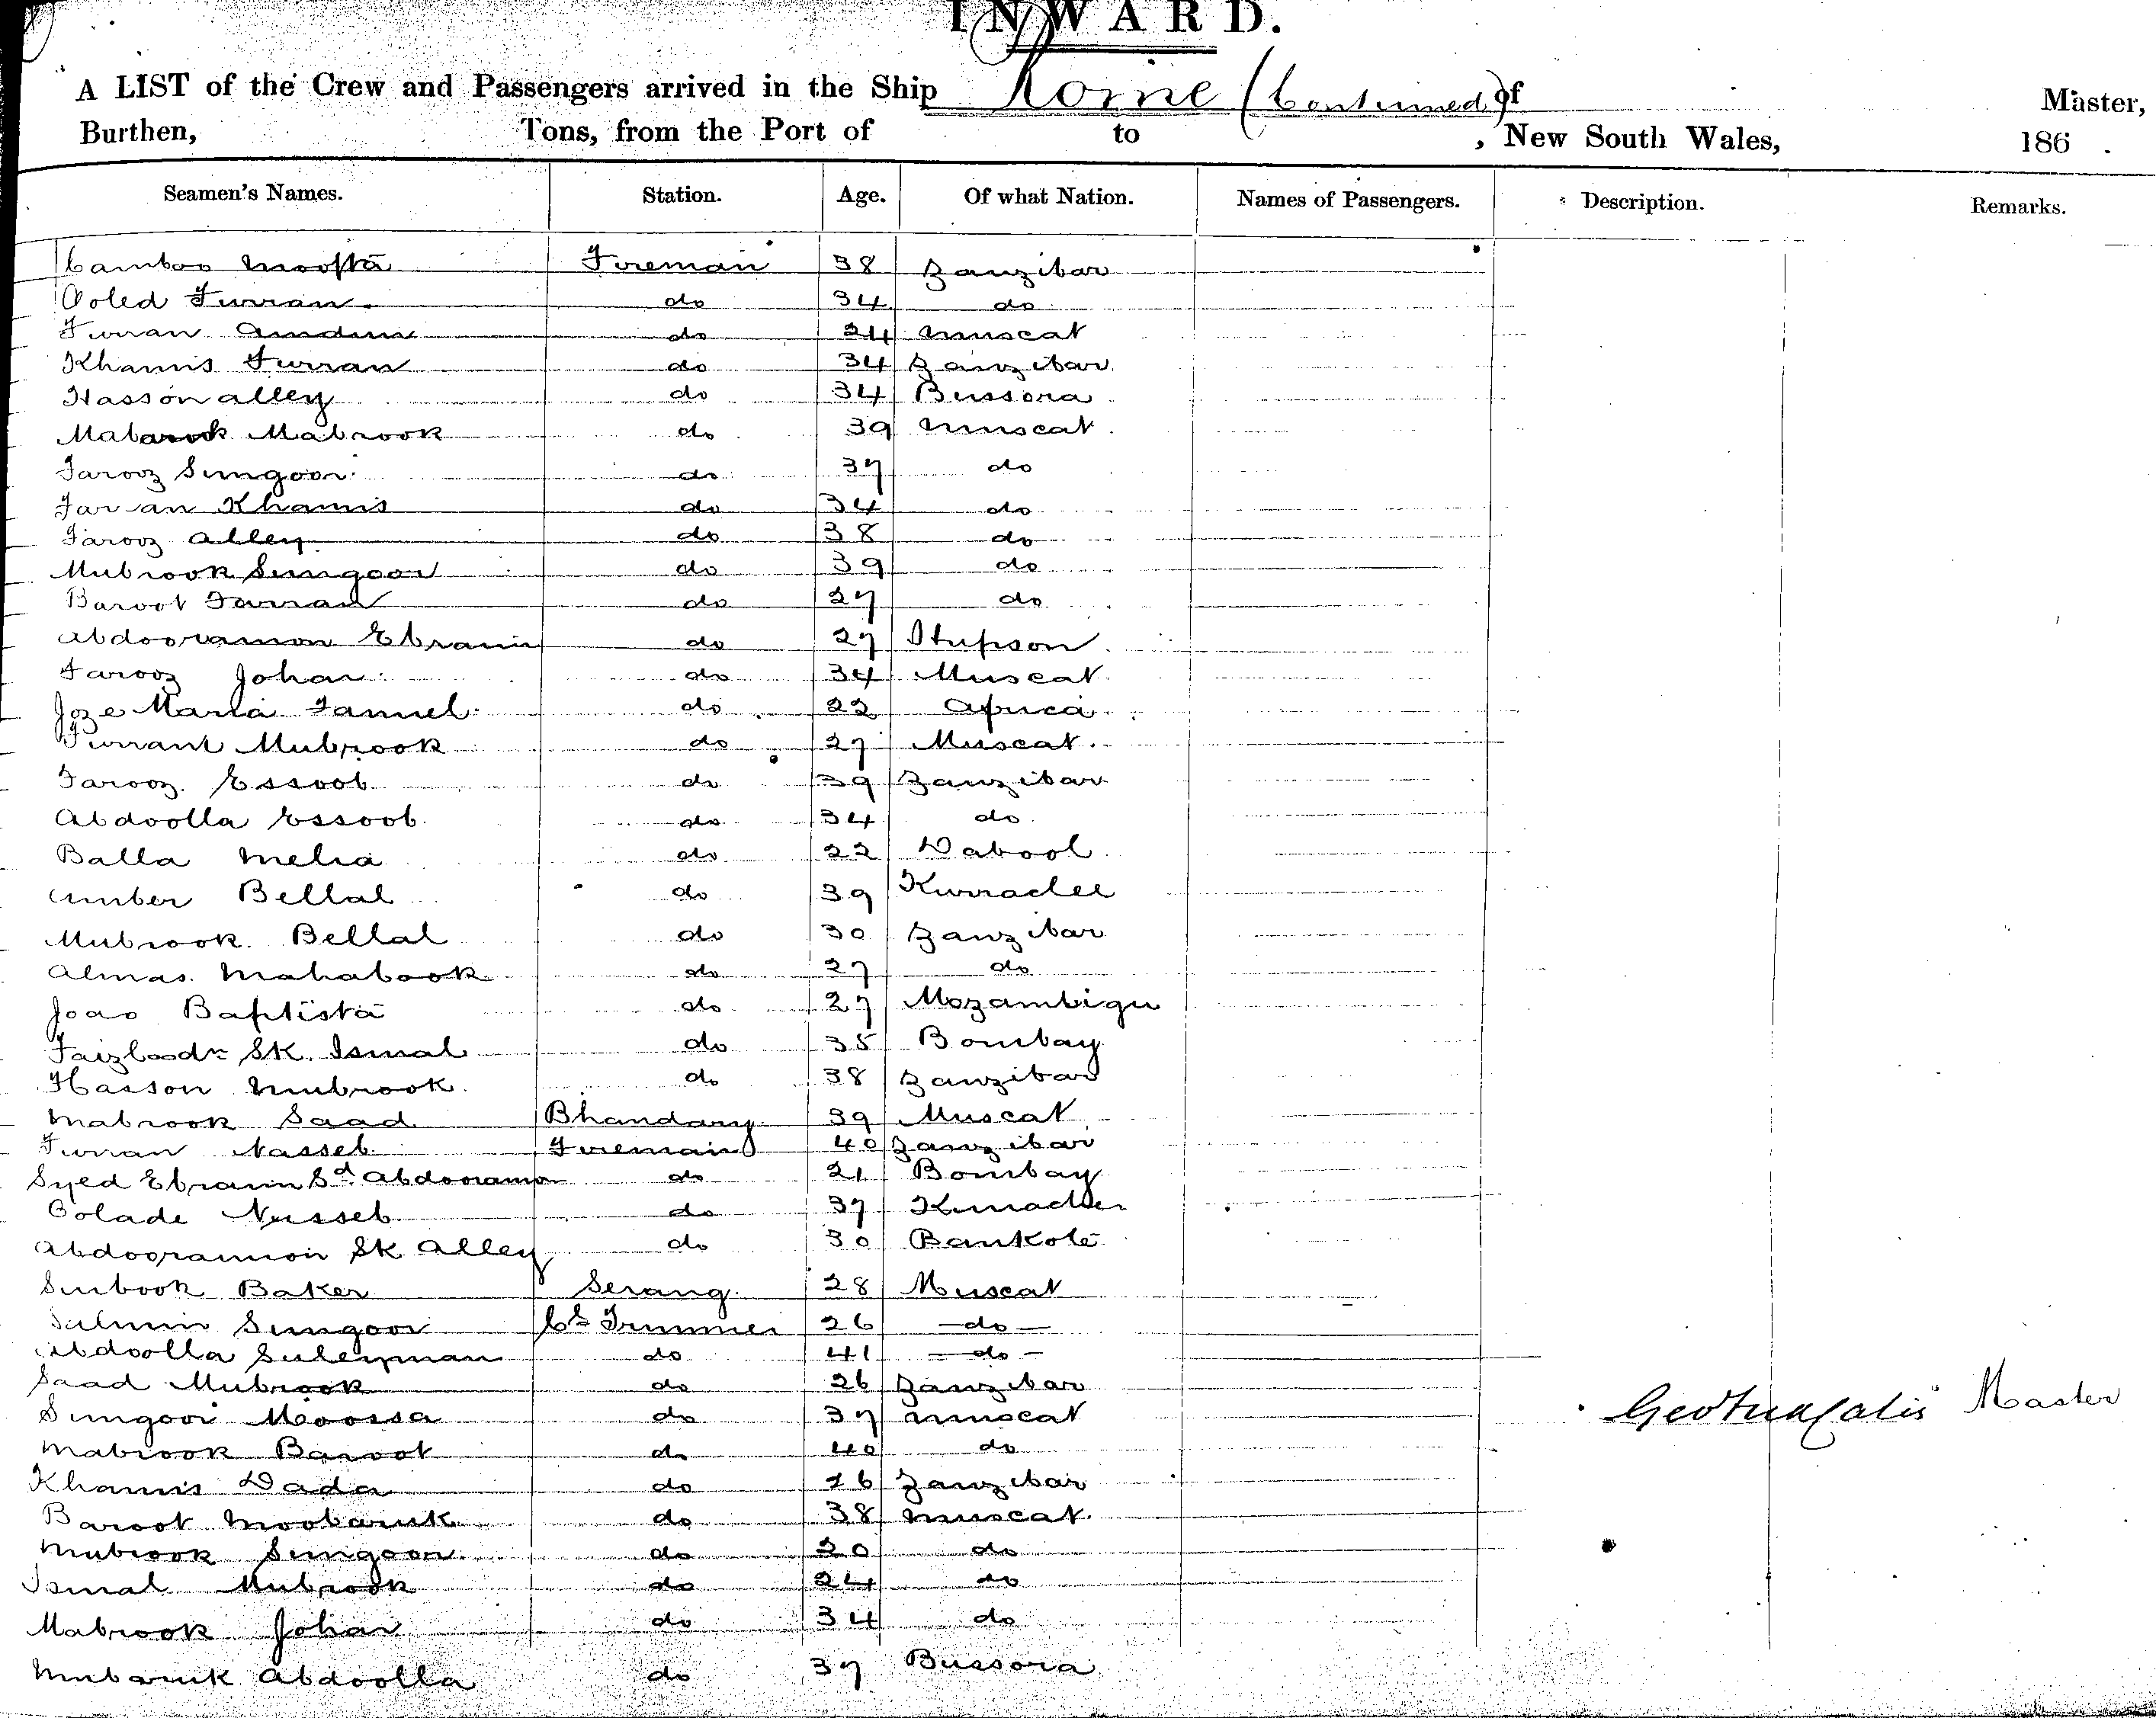 INWARD.
A LIST of the Crew and Passengers arrived in the Ship Rome (Continued) of Master,
Burthen, Tons, from the Port of to , New South Wales, 186 .
Seamen's Names. Station. Age. Of what Nation. Names of Passengers. Description. Remarks.
Camboo Moosta Fireman 38 Zanzibar
Ooled Furran do 34 do
Furran Amdun do 24 Muscat
Khamis Furran do 34 Zanzibar
Hasson Alley do 34 Bussora
Mabarook Mabrook do 39 Muscat
Farooz Sungoor do 37 do
Farran Khamis do 34 do
Farooz Alley do 38 do
Mubrook Sungoor do 39 do
Baroot Farran do 27 do
Abdooramon Ebraim do 27 Stupson
Farooz Johar do 34 Muscat
Joze Maria Famuel do 22 Africa
Furrant Mubrook do 27 Muscat
Farooz Essoob do 39 Zanzibar
Abdoolla Essoob do 34 do
Balla Melia do 22 Dabool
Amber Bellal do 39 Kurrachee
Mubrook Bellal do 30 Zanzibar
Almas Mahabook do 27 do
Joao Baptista do 27 Mozambiqu
Faizloodn SK. Ismal do 35 Bombay
Hasson Mubrook do 38 Zanzibar
Mabrook Saad Bhandary 39 Muscat
Furran Nasseb Fireman 40 Zanzibar
Syed Ebraim Sd Abdooramon do 21 Bombay
Oolade Nusseb do 37 Kurrachee
Abdooramon SK Alley do 30 Bankote
Surbook Baker Serang 28 Muscat
Sulmin Sungoor Cl Trimmer 26 do
Abdoolla Suleyman do 41 do
Saad Mubrook do 26 Zanzibar
Sungoor Moossa do 37 Muscat
Geo Master
Mabrook Baroot do 40 do
Khamis Dada do 26 Zanzibar
Baroot Moobaruk do 38 Muscat
Mubrook Sungoor do 20 do
Ismal Mubrook do 24 do
Mabrook Johar do 34 do
Mubaruk Abdoolla do 37 Bussora